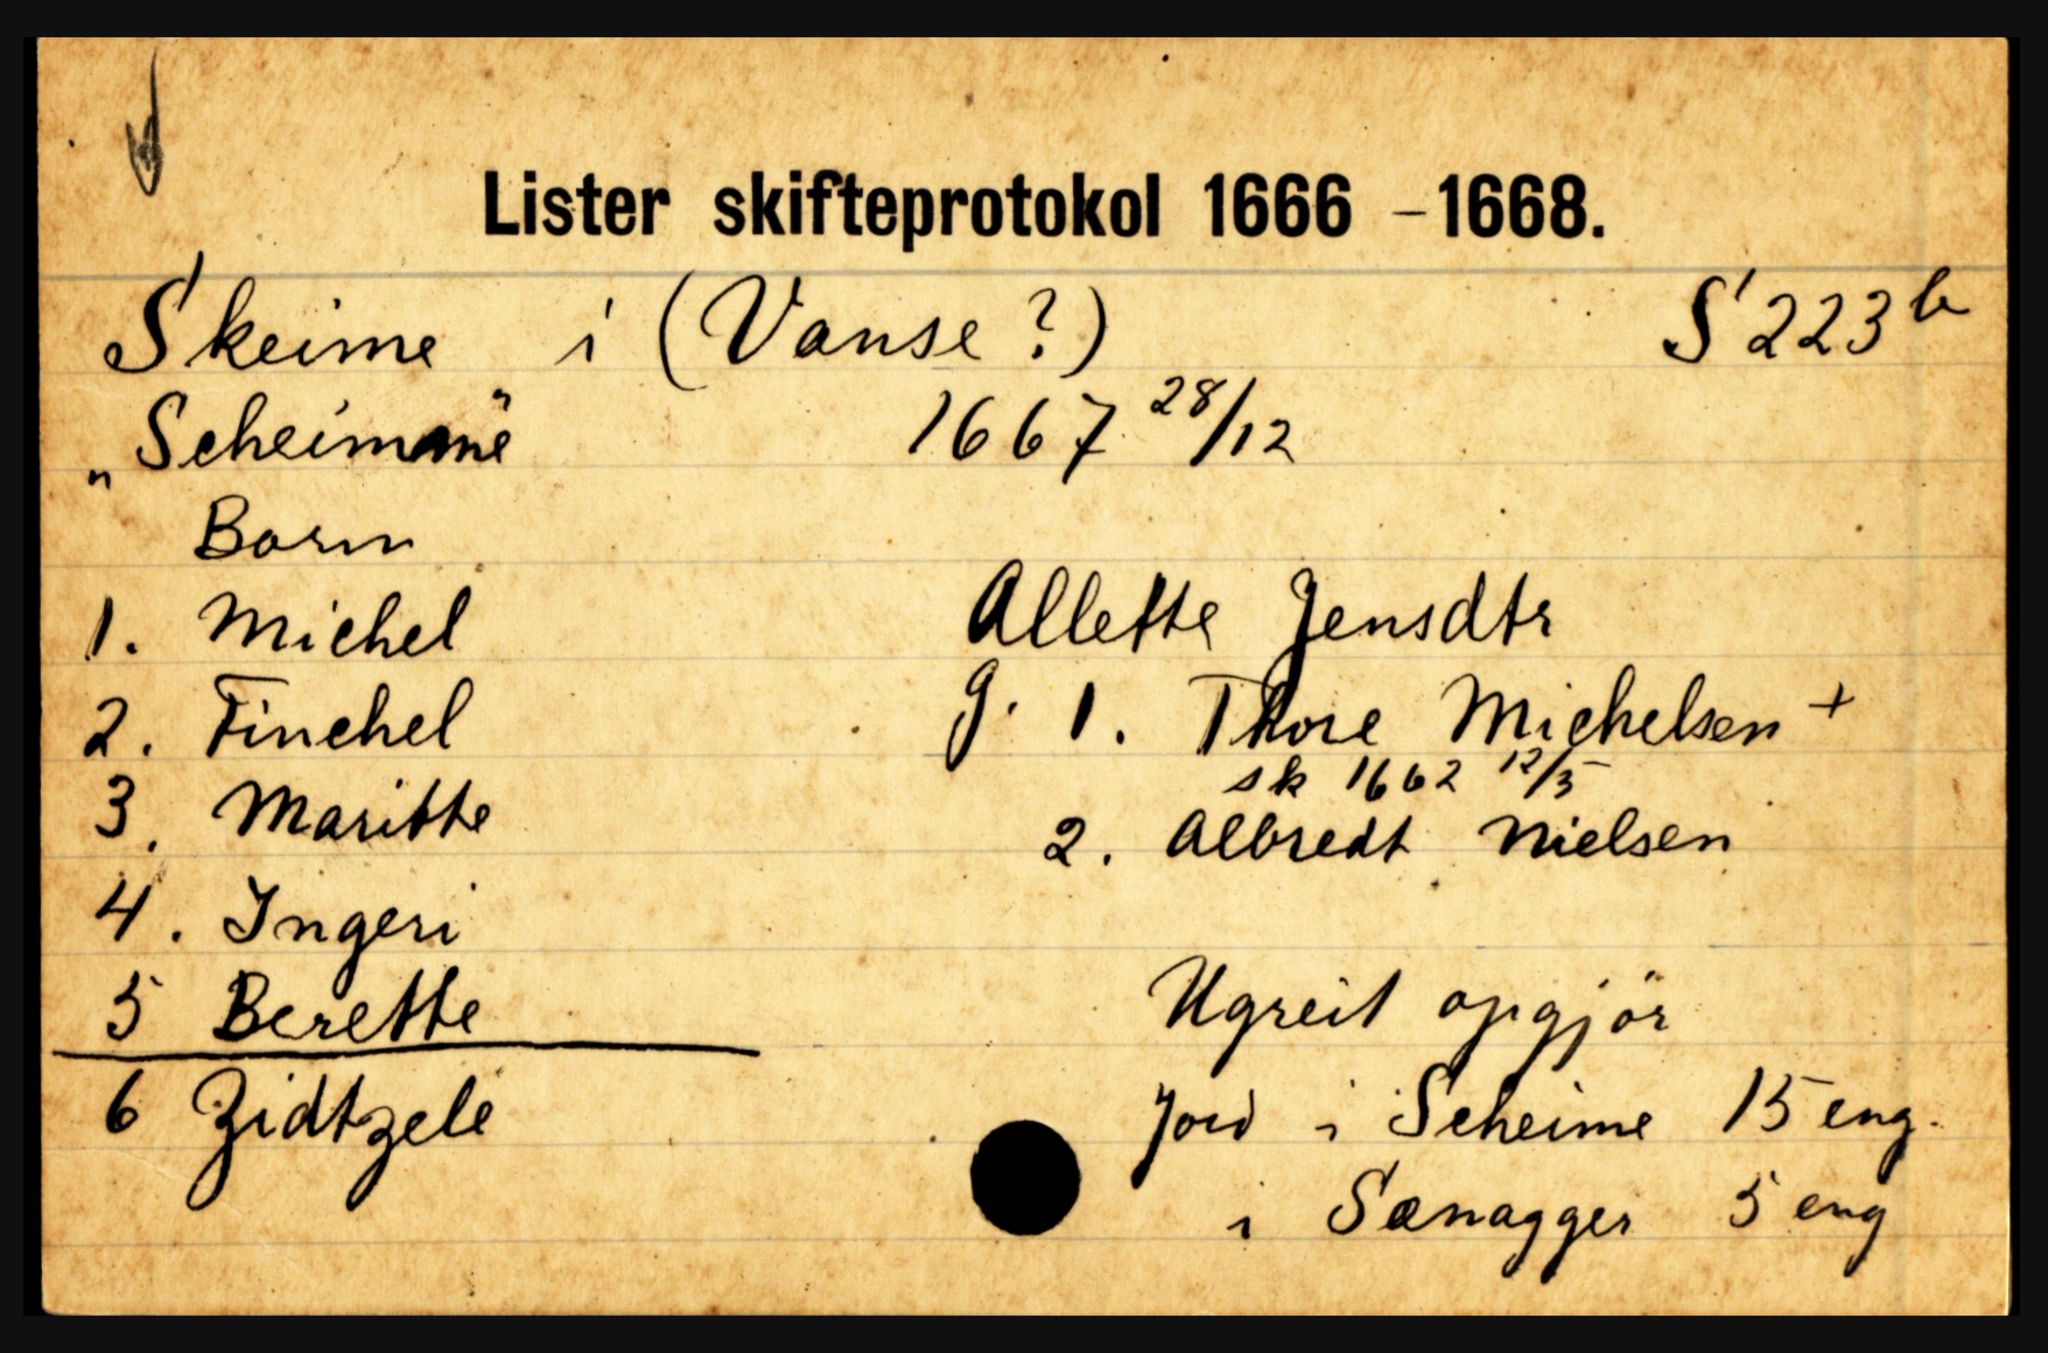 Lister skifteprotokol 1666 - 1668.
Skeime i (Vanse?) S 223 b
„Scheimme" 1667 28/12
Born
1. Michel Allette Jensdtr
2. Finchel g. 1. Thore Michelsen +
sk 1662 12/5
3. Maritte 2. Albredt Nielsen
4. Ingeri
5 Berette Ugreit opgjör
6 Zidtzele Jord i Scheime 15 eng.
i Sænagger 5 eng